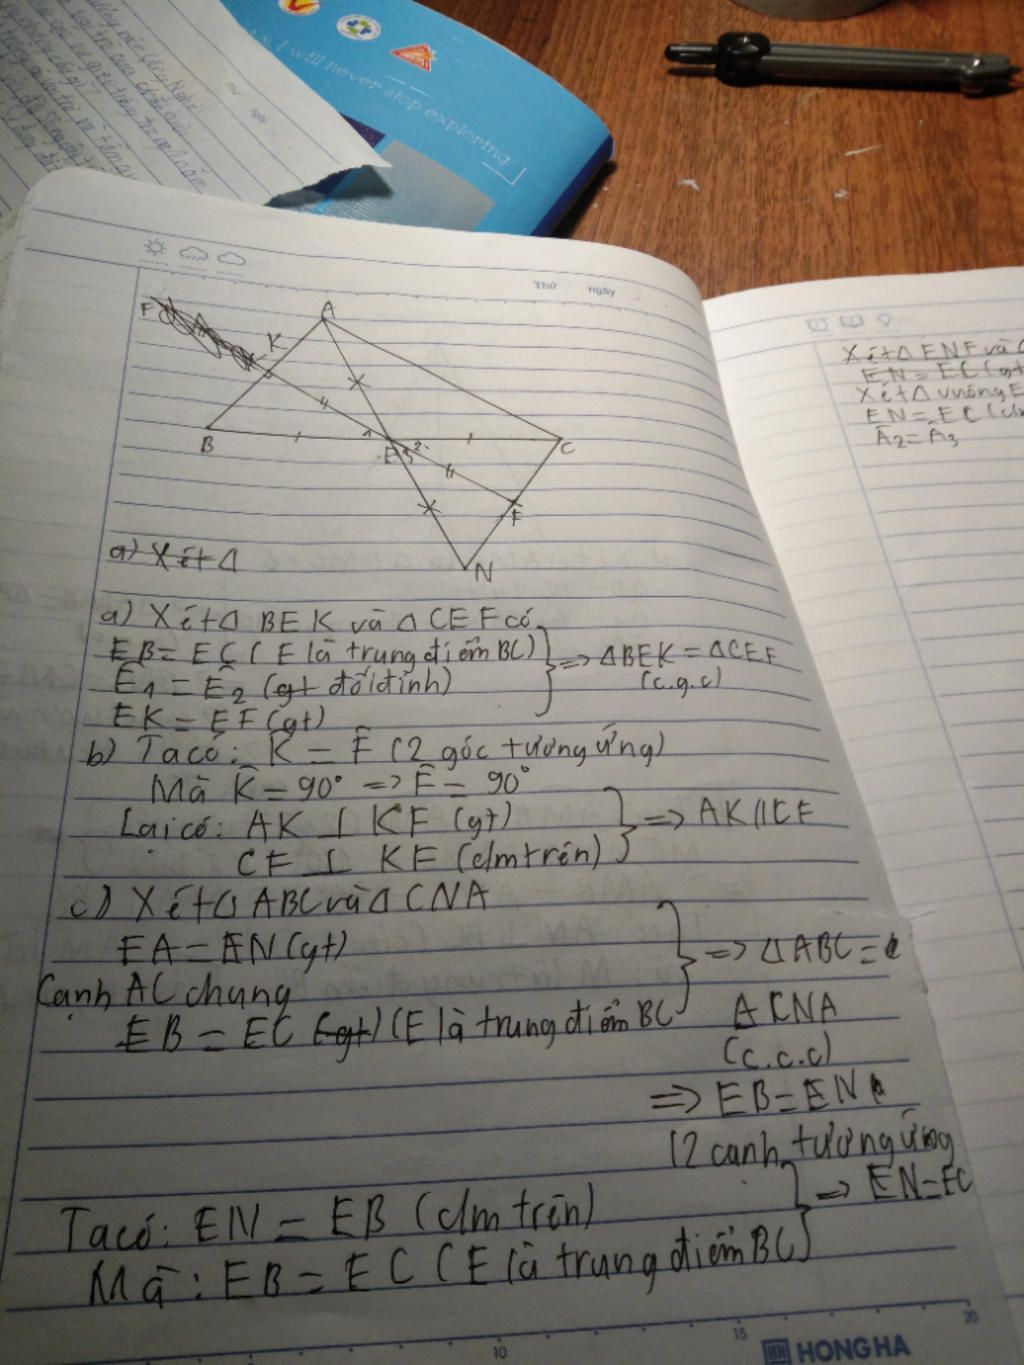 & I will never stop exploring
Thứ ngày
F
A
K
B
E
1
2
3
C
F
N
a) Xét Δ
a) Xét Δ BEK và Δ CEF có
EB = EC (E là trung điểm BC)
Ê1 = Ê2 (gt đối đỉnh)
EK = EF (gt)
=> ΔBEK = ΔCEF
(c.g.c)
b) Ta có: K̂ = F̂ (2 góc tương ứng)
Mà K̂ = 90° => F̂ = 90°
Lại có: AK ⊥ KF (gt)
CF ⊥ KF (clm trên)
=> AK // CF
c) Xét Δ ABC và Δ CNA
EA = EN (gt)
Cạnh AC chung
EB = EC (gt) (E là trung điểm BC
=> ΔABC =
ΔCNA
(c.c.c)
=> EB = EN
(2 cạnh tương ứng
Ta có: EN = EB (clm trên)
Mà : EB = EC (E là trung điểm BC)
=> EN = EC
10
15
20
HONG HA
Xét Δ ENF và
EN = EC (gt
Xét Δ vuông E
EN = EC (clm
Â2 = Â3